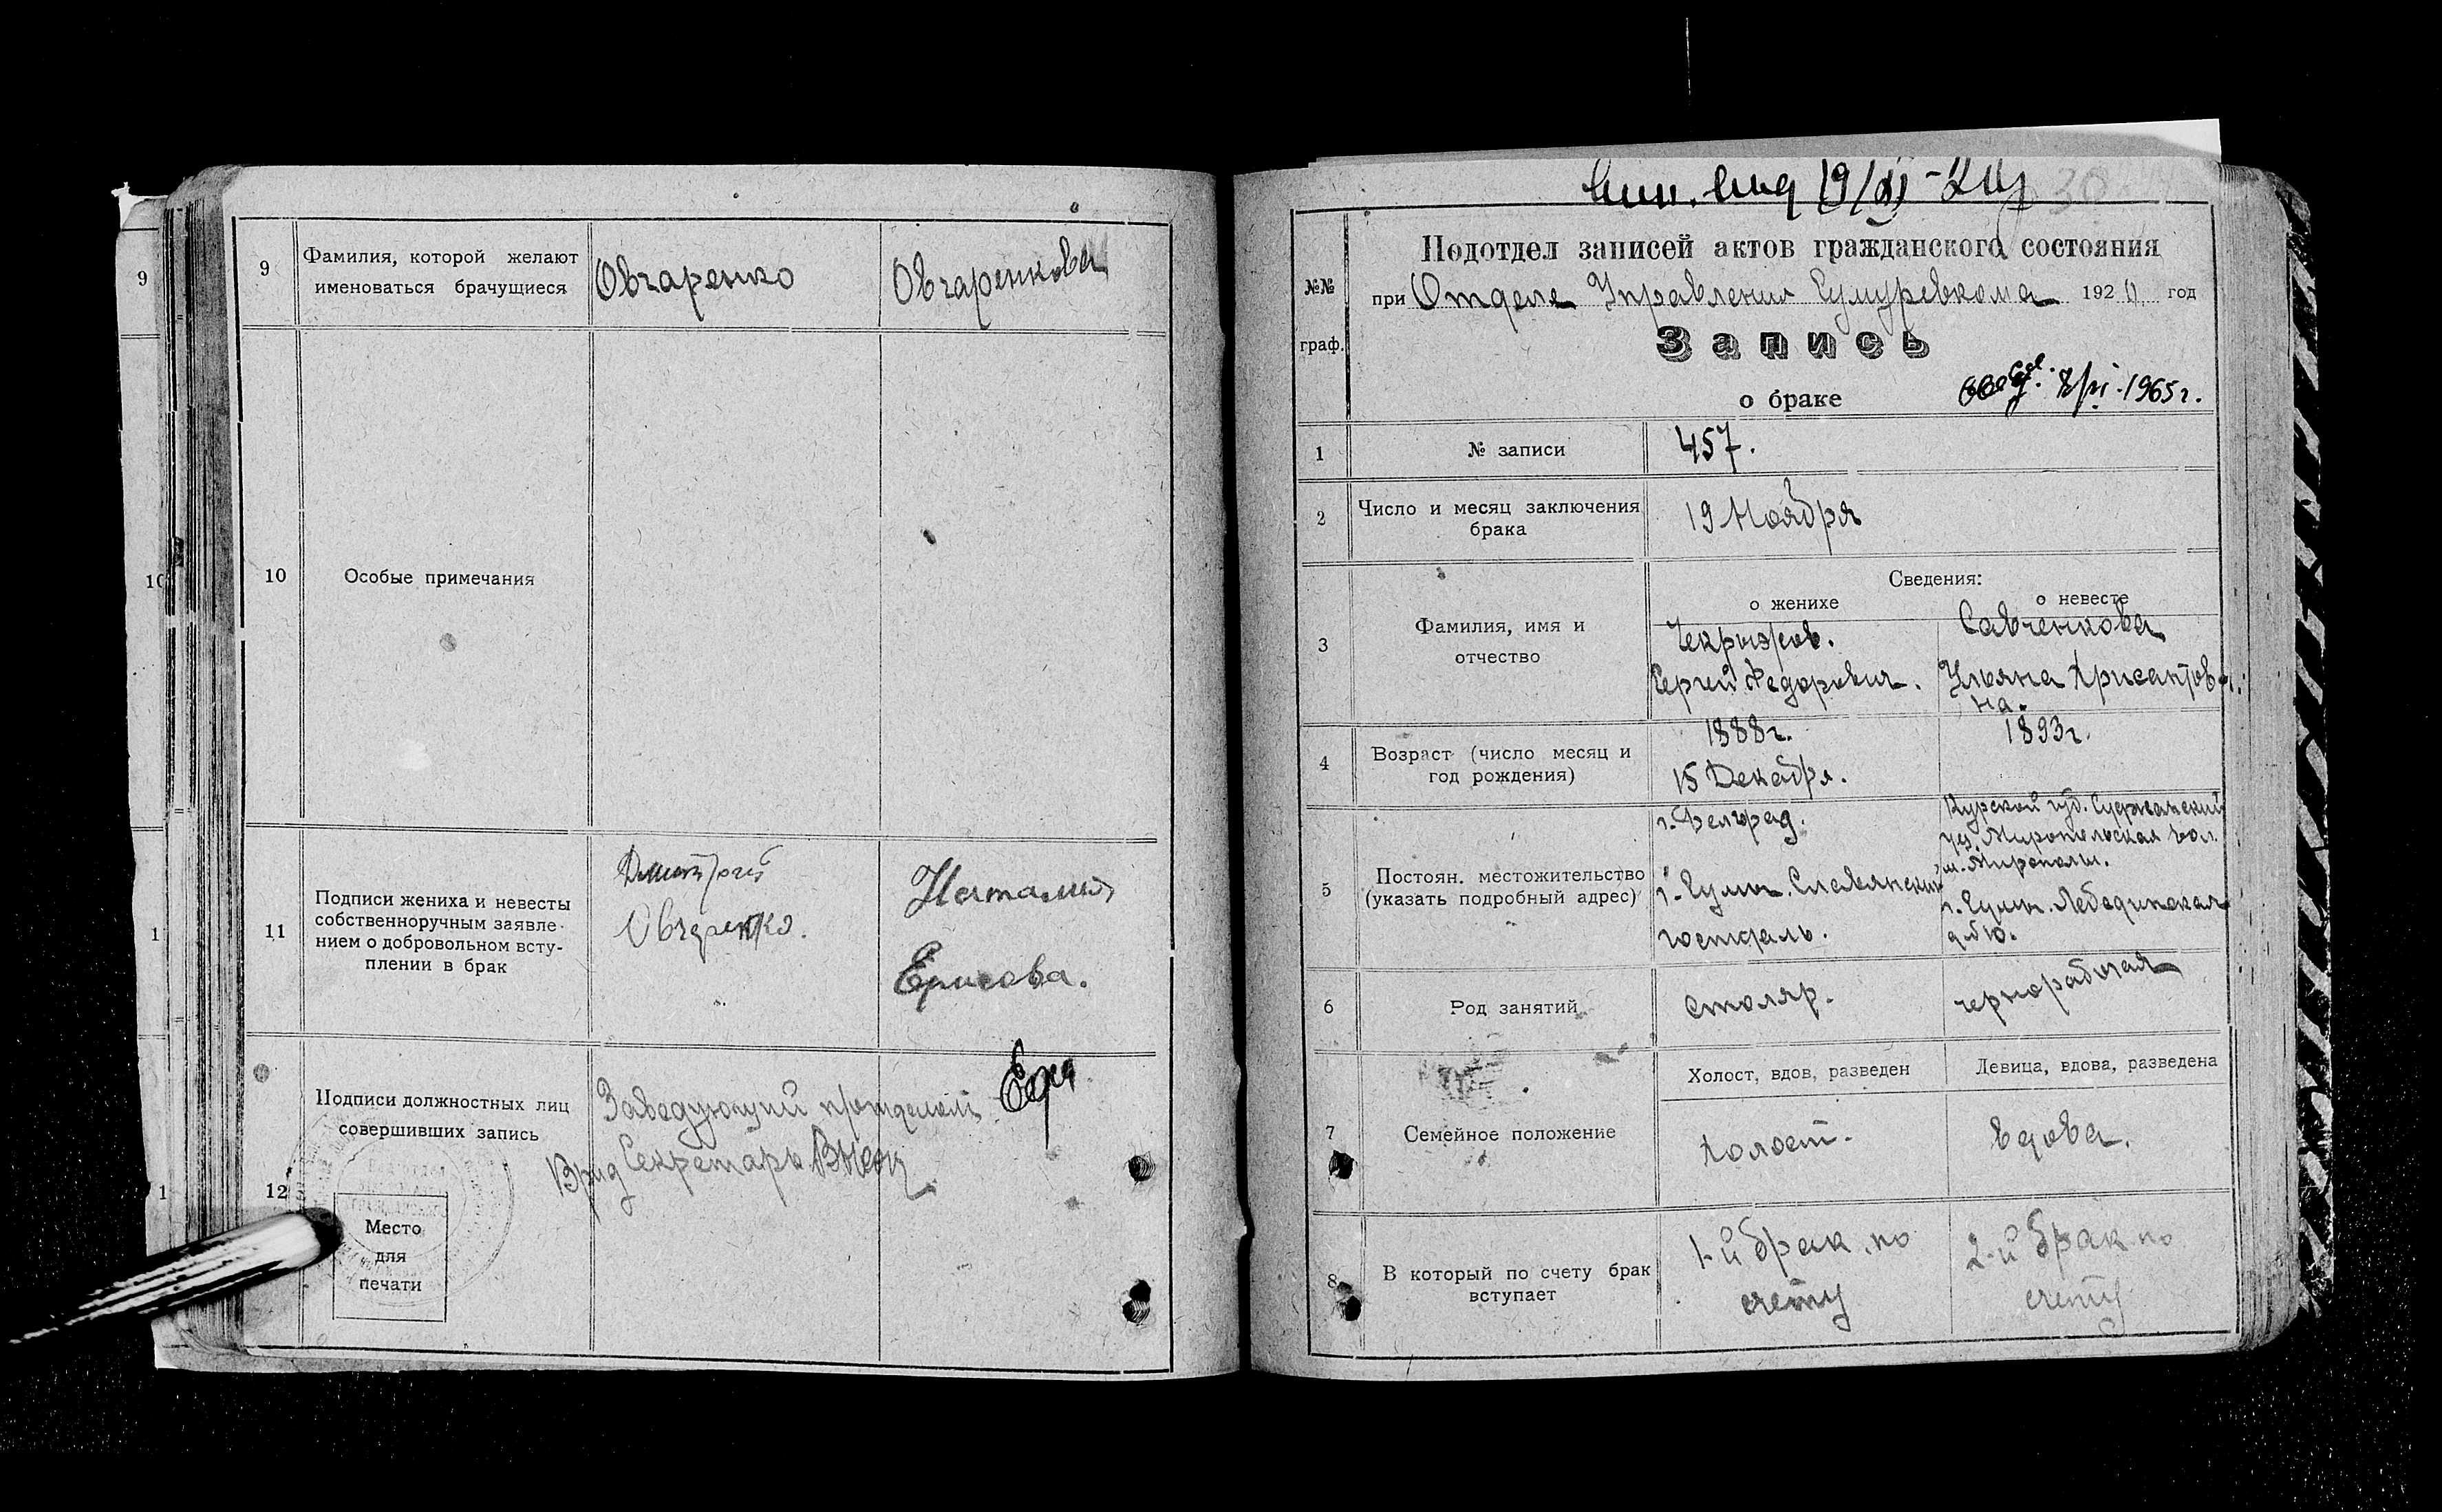 9
Фамилия, которой желают
именоваться брачущиеся
Овчаренко
Овчаренкова
10
Особые примечания
11
Подписи жениха и невесты
собственноручным заявле-
нием о добровольном всту-
плении в брак
Дмитрий
Овчаренко.
Наталия
Ерисова.
12
Подписи должностных лиц
совершивших запись
Заведующий п/отделом
Врид Секретарь
Место
для
печати
9
10
1
1
19/XI-20г
30
№№
граф.
Подотдел записей актов гражданского состояния
при Отделе Управления Сумуревкома 1920 год
Запись
о браке
8/VI-1965г.
1
№ записи
457.
2
Число и месяц заключения
брака
19 Ноября
3
Фамилия, имя и
отчество
Сведения:
о женихе
о невесте
Чекрыжов.
Сергей Федорович.
Савченкова
Ульяна Хрисантов-
на.
4
Возраст (число месяц и
год рождения)
1888г.
15 Декабря.
1893г.
5
Постоян. местожительство
(указать подробный адрес)
г. Белград.
г. Сумы. Славянский
госпиталь.
Курской губ. Суджанский
уез. Миропольская вол.
м. Мирополье.
г. Сумы. Лебединская
6
Род занятий
столяр.
чернорабочая
7
Семейное положение
Холост, вдов, разведен
Девица, вдова, разведена
холост.
вдова.
8
В который по счету брак
вступает
1-й брак по
счету
2-й брак по
счету